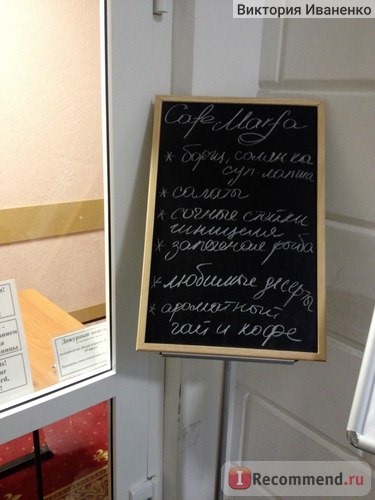 Виктория Иваненко
Cafe Marfa
* борщ, солянка
суп-лапша
* салаты
* сочные стейки
шницеля
* запеченая рыба
* любимые десерты
* ароматный
чай и кофе
Дежурный
IRecommend.ru